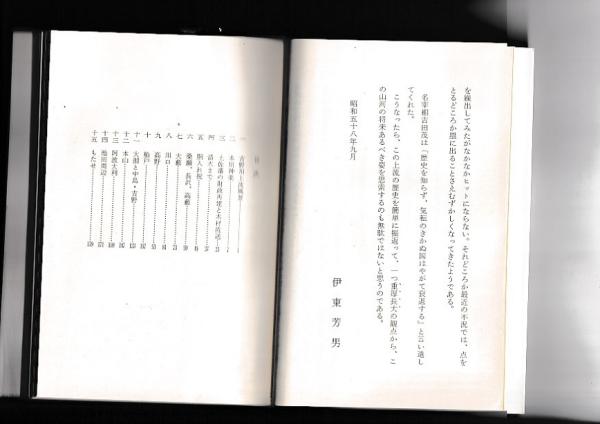 を繰出してみたがなかなかヒットにならない。それどころか最近の不況では、点を
とるどころか塁に出ることさえむずかしくなってきたようである。
名宰相吉田茂は「歴史を知らず、気転のきかぬ国はやがて衰退する」と言い遺し
てくれた。
こうなったら、この上流の歴史を簡単に振返って、一つ重厚長大の観点から、こ
の山河の将来あるべき姿を思索するのも無駄ではないと思うのである。
昭和五十八年九月
伊東芳男
目次
一
二 本川神楽
三 土佐藩の財政再建と木材流送
四
五
六 桑瀬、長沢、高薮
七 大薮
八 川口
九 高野
十 船戸
十一 大淵と中島・吉野
十二 本山
十三 阿波大利
十四 池田周辺
十五 もたせ